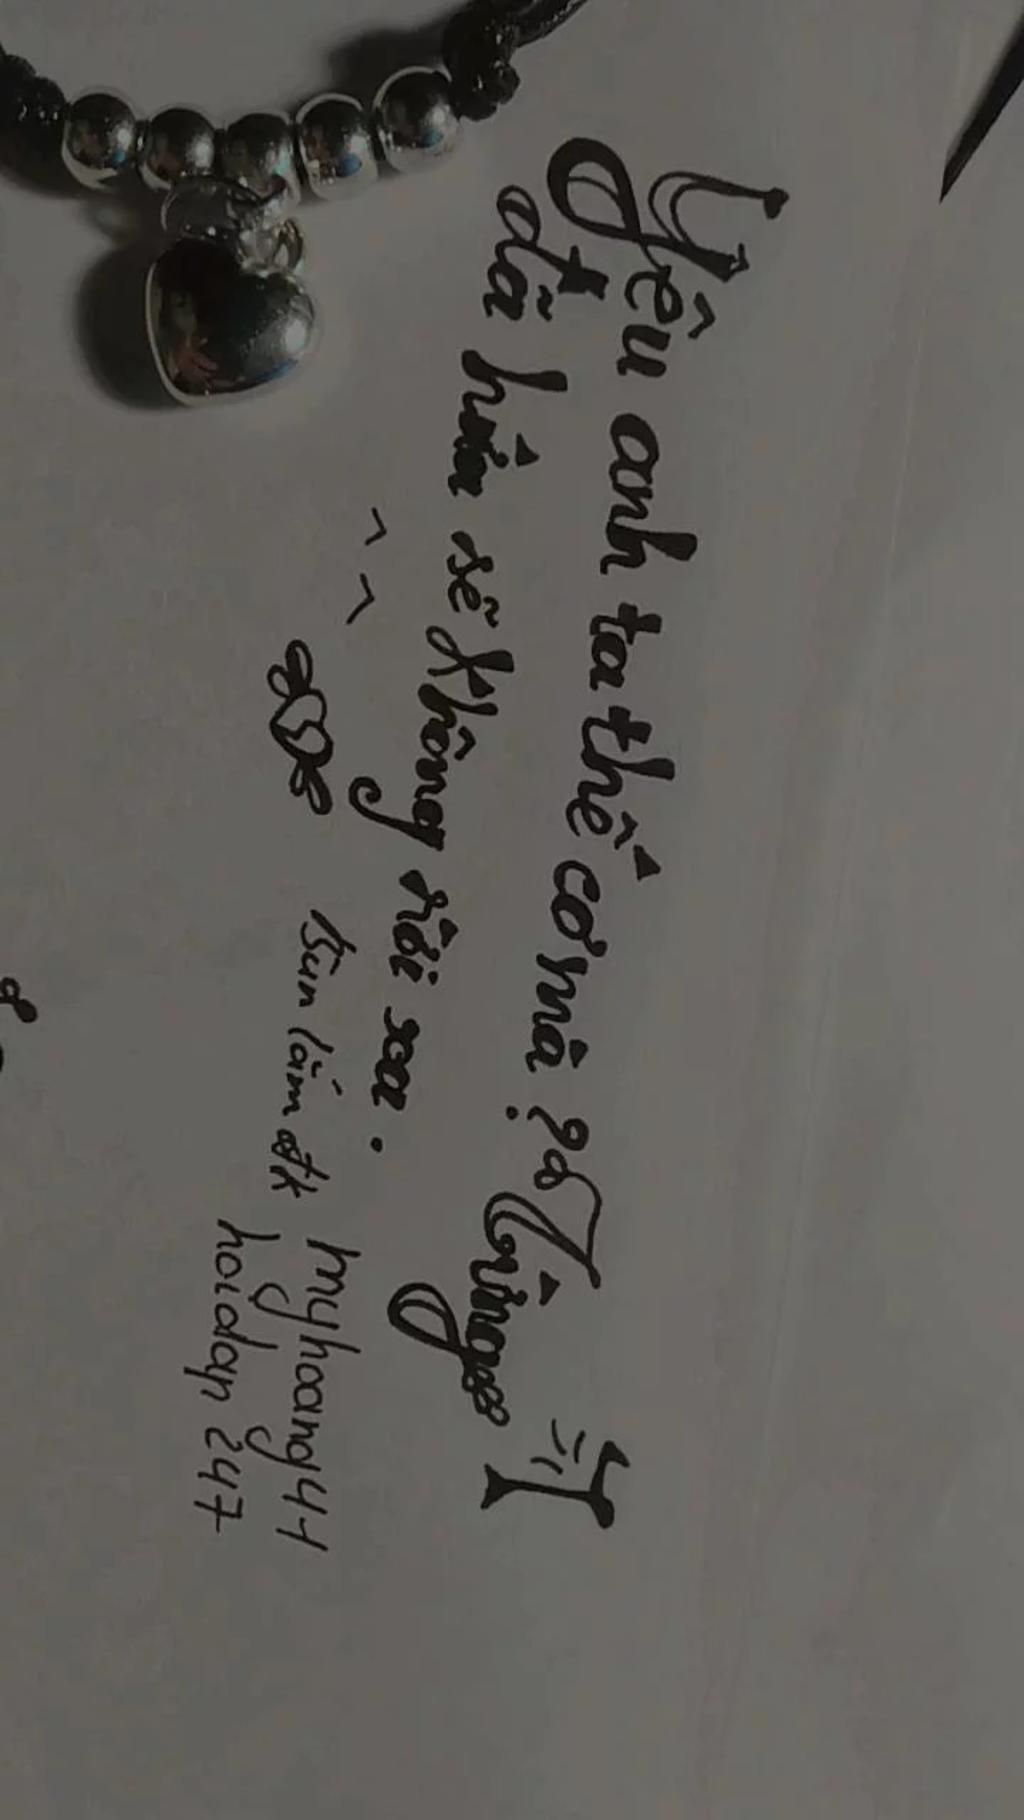 Yêu anh ta thế cơ mà ? Từng
đã hứa sẽ không rời xa .
^ ^
lắm đk
myhoang44
hoidap 247